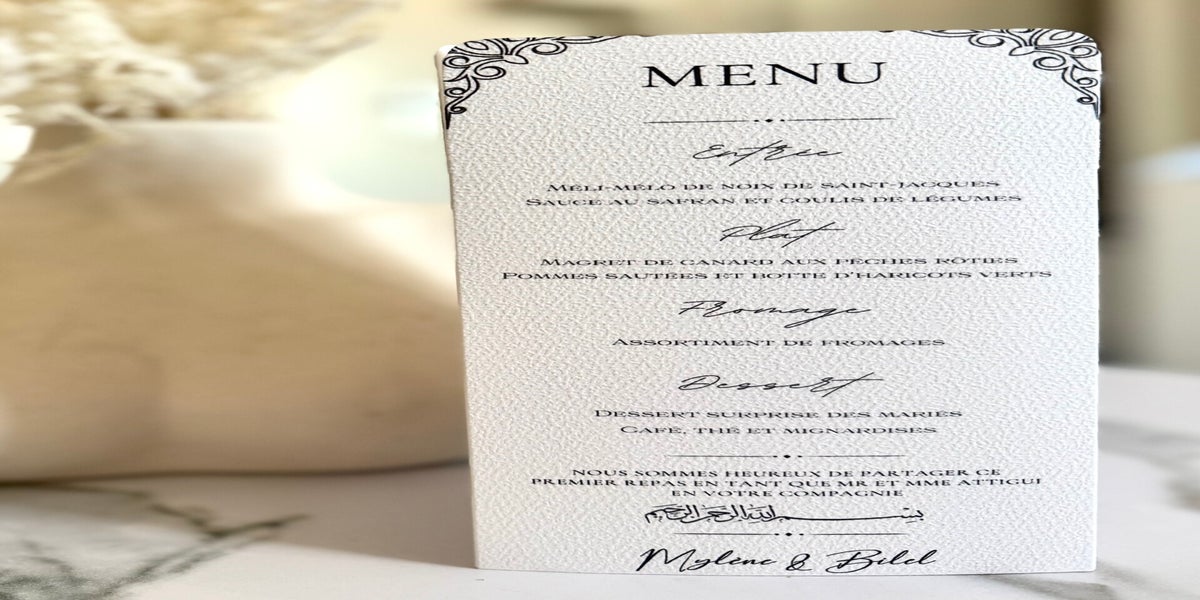 MENU
Entrée
MÉLI-MÉLO DE NOIX DE SAINT-JACQUES
SAUCE AU SAFRAN ET COULIS DE LÉGUMES
Plat
MAGRET DE CANARD AUX PÊCHES RÔTIES
POMMES SAUTÉES ET BOTTE D'HARICOTS VERTS
Fromage
ASSORTIMENT DE FROMAGES
Dessert
DESSERT SURPRISE DES MARIÉS
CAFÉ, THÉ ET MIGNARDISES
NOUS SOMMES HEUREUX DE PARTAGER CE
PREMIER REPAS EN TANT QUE MR ET MME ATTIGUI
EN VOTRE COMPAGNIE
بسم الله الرحمن الرحيم
Mylène & Bilel